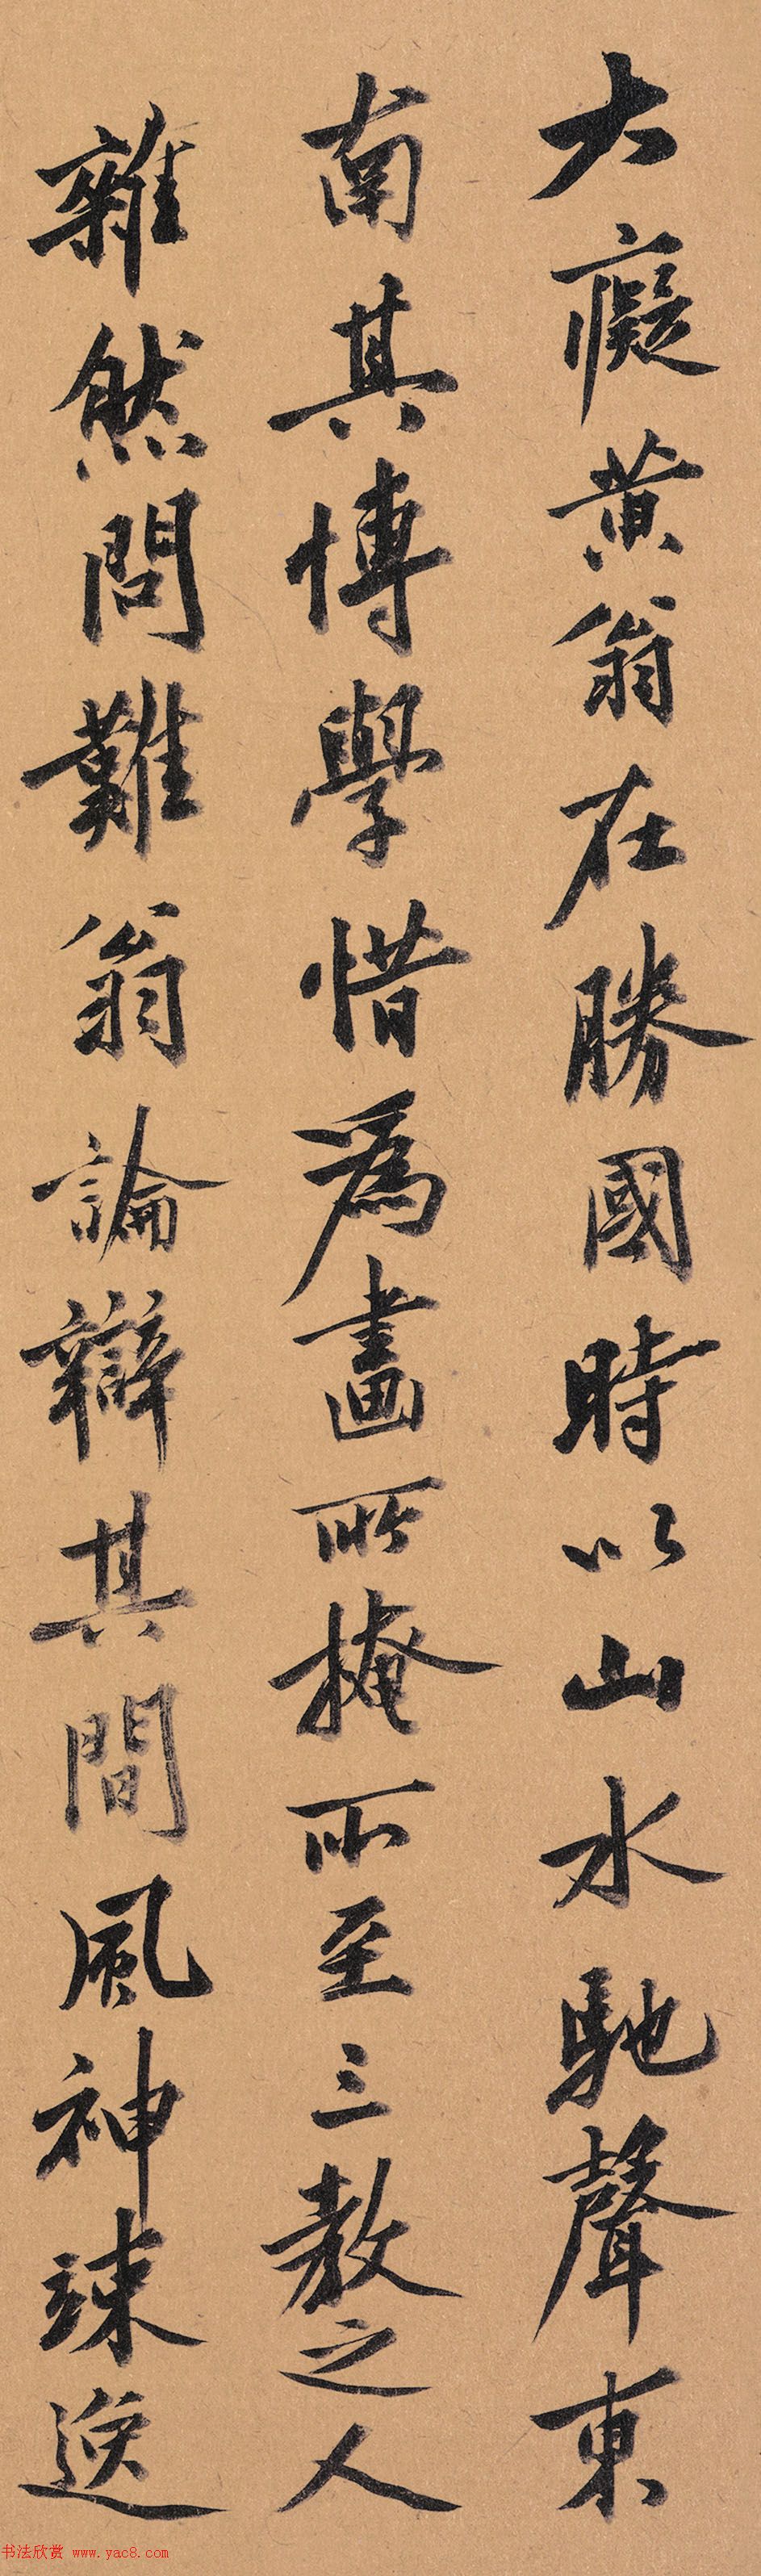 大癡黄翁在勝國時以山水馳聲東
南其博學惜爲畫所掩所至三教之人
雜然問難翁論辯其間風神竦逸
书法欣赏 www.yac8.com